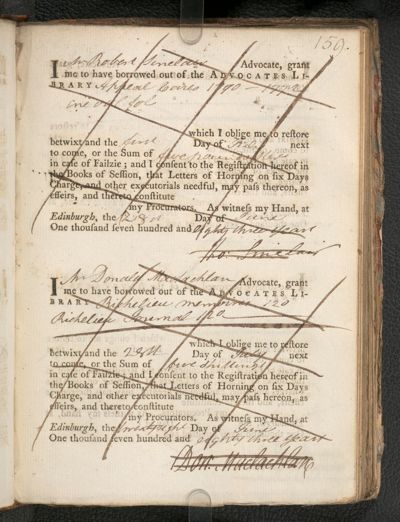 159.
I Mr Robert Sinclair Advocate, grant
me to have borrowed out of the ADVOCATES LI-
BRARY Appeal Cases 1700 —
one vol fol
which I oblige me to reſtore
betwixt and the firſt Day of July next
to come, or the Sum of five pounds
in caſe of Failzie; and I conſent to the Regiſtration hereof in
the Books of Seſſion, that Letters of Horning on ſix Days
Charge, and other executorials needful, may paſs thereon, as
effeirs, and thereto conſtitute
my Procurators. As witneſs my Hand, at
Edinburgh, the 28th Day of June
One thouſand ſeven hundred and eighty three years
Ro. Sinclair
I Mr Donald Maclachlan Advocate, grant
me to have borrowed out of the ADVOCATES LI-
BRARY Richelieu memoires 120
Richelieu Journal 120
which I oblige me to reſtore
betwixt and the 28th Day of July next
to come, or the Sum of five ſhillings
in caſe of Failzie; and I conſent to the Regiſtration hereof in
the Books of Seſſion, that Letters of Horning on ſix Days
Charge, and other executorials needful, may paſs hereon, as
effeirs, and thereto conſtitute
my Procurators. As witneſs my Hand, at
Edinburgh, the twenty eight Day of June
One thouſand ſeven hundred and eighty three years
Don. Maclachlan